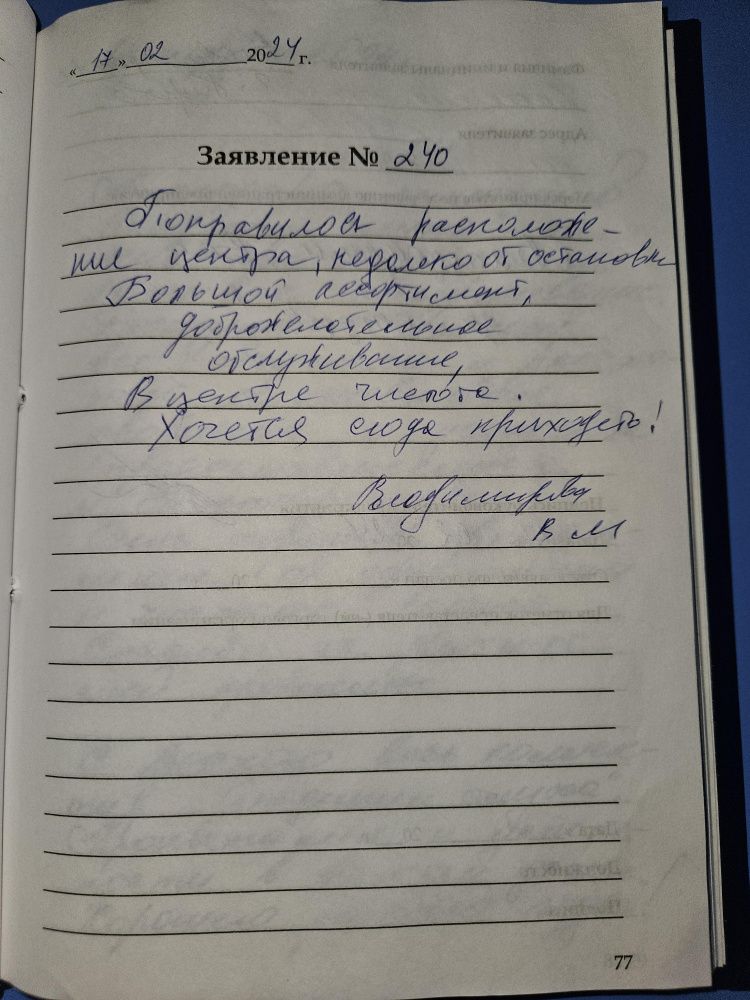 «17» 02 2024 г.
Заявление № 240
Понравилось расположе-
ние центра, недалеко от остановки
Большой ассортимент,
доброжелательное
обслуживание,
В центре чистота.
Хочется сюда приходить!
Владимирова
В М
77